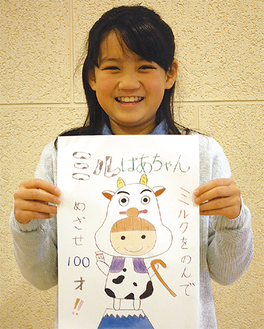 ミルばあちゃん
ミルクをのんで
めざせ100才!!